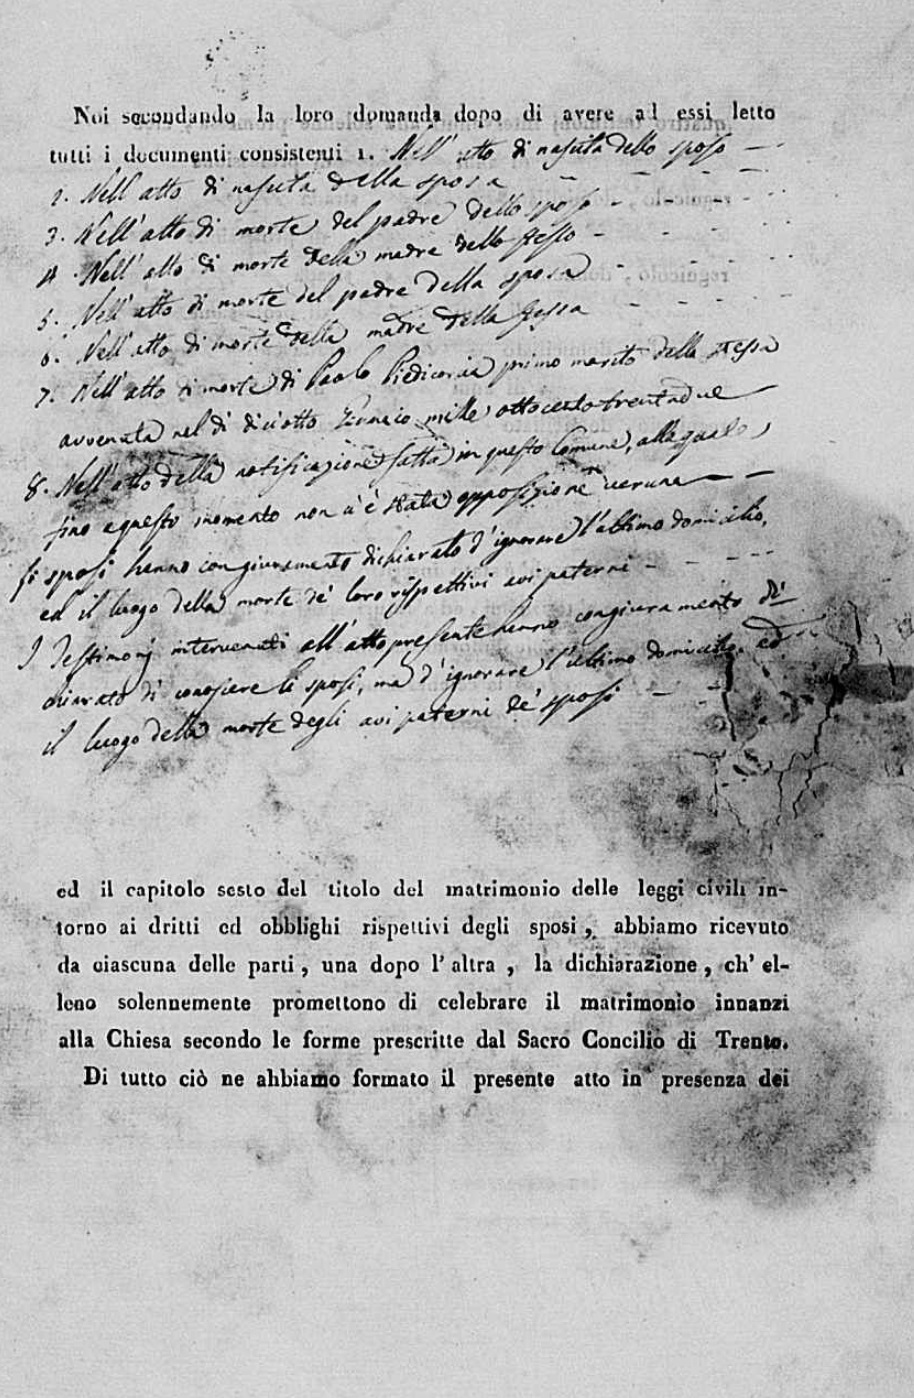 Noi secondando la loro domanda dopo di avere ad essi letto
tutti i documenti consistenti 1. Nell' atto di nascita dello sposo
2. Nell' atto di nascita della sposa
3. Nell' atto di morte del padre dello sposo
4. Nell' atto di morte della madre dello stesso
5. Nell' atto di morte del padre della sposa
6. Nell' atto di morte della madre della stessa
7. Nell' atto di morte di Paolo primo marito della stessa
avvenuta nel dì diciotto Gennaio mille ottocento trentadue
8. Nell' atto della notificazione fatta in questo Comune, alla quale
fino a questo momento non v'è stata opposizione veruna
sposi hanno con giuramento dichiarato d'ignorare l'ultimo domicilio,
ed il luogo della morte de' loro rispettivi avi paterni
I Testimonj intervenuti all' atto presente hanno con giuramento di-
chiarato di conoscere li sposi, ma d'ignorare l'ultimo domicilio, ed
il luogo della morte degli avi paterni de' sposi
ed il capitolo sesto del titolo del matrimonio delle leggi civili in-
torno ai dritti ed obblighi rispettivi degli sposi, abbiamo ricevuto
da ciascuna delle parti, una dopo l' altra, la dichiarazione, ch' el-
leno solennemente promettono di celebrare il matrimonio innanzi
alla Chiesa secondo le forme prescritte dal Sacro Concilio di Trento.
Di tutto ciò ne abbiamo formato il presente atto in presenza dei